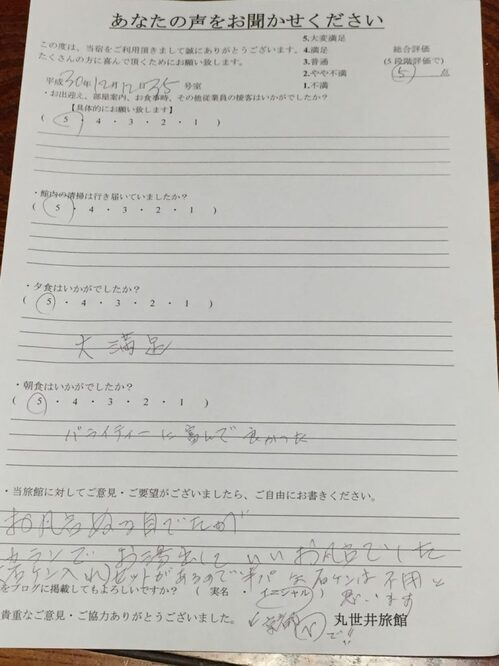 あなたの声をお聞かせください
この度は、当宿をご利用頂きまして誠にありがとうございます。
たくさんの方に喜んで頂くためにお願い致します。
5.大変満足
4.満足
3.普通
2.やや不満
1.不満
総合評価
(5段階評価で)
5 点
平成30年12月12日35号室
・お出迎え、部屋案内、お食事時、その他従業員の接客はいかがでしたか?
【具体的にお願い致します】
( 5 ・ 4 ・ 3 ・ 2 ・ 1 )
・館内の清掃は行き届いていましたか?
( 5 ・ 4 ・ 3 ・ 2 ・ 1 )
・夕食はいかがでしたか?
( 5 ・ 4 ・ 3 ・ 2 ・ 1 )
大満足
・朝食はいかがでしたか?
( 5 ・ 4 ・ 3 ・ 2 ・ 1 )
バライティーに富んで良かった
・当旅館に対してご意見・ご要望がございましたら、ご自由にお書きください。
お風呂ぬる目でたが
カランでお湯出していいお風呂でした
(石ケン入れ)セットがあるので 石ケンは不用と
思います
をブログに掲載してもよろしいですか? ( 実名 ・ イニシャル )
貴重なご意見・ご協力ありがとうございました。
で!!
丸世井旅館